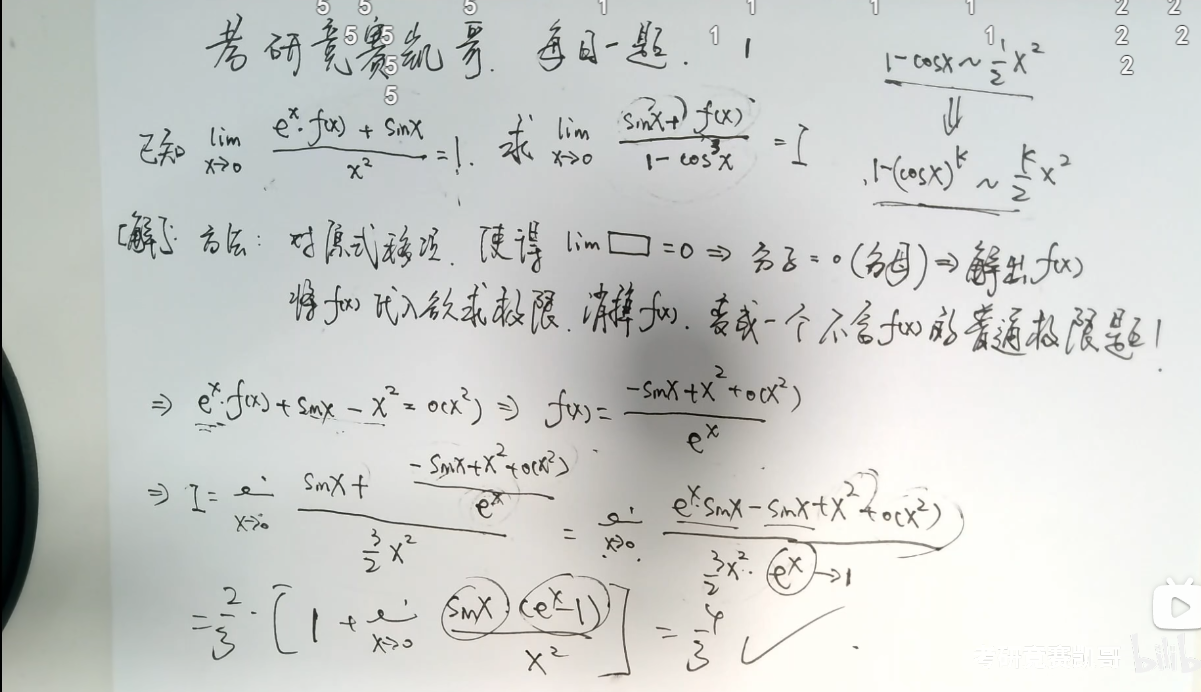 5 5 5 1 1 1 1 2 2
5 5 1 1 2 2
5 2
5
考研竞赛凯哥. 每日一题. 1
1-cosx ~ 1/2 x²
⇓
1-(cosx)^k ~ k/2 x²
已知 lim x→0 (e^x·f(x) + sinx)/x² = 1. 求 lim x→0 (sinx + f(x))/(1-cos³x) = I
[解]: 方法: 对原式移项, 使得 lim □ = 0 ⇒ 分子 = o(分母) ⇒ 解出 f(x)
将f(x)代入欲求极限, 消掉f(x), 变成一个不含f(x)的普通极限题!
⇒ e^x·f(x) + sinx - x² = o(x²) ⇒ f(x) = (-sinx + x² + o(x²))/e^x
⇒ I = lim x→0 (sinx + (-sinx + x² + o(x²))/e^x)/(3/2 x²) = lim x→0 (e^x·sinx - sinx + x² + o(x²))/(3/2 x²·e^x) →1
= 2/3·[1 + lim x→0 sinx·(e^x-1)/x²] = 4/3 ✓
考研竞赛凯哥 bilib